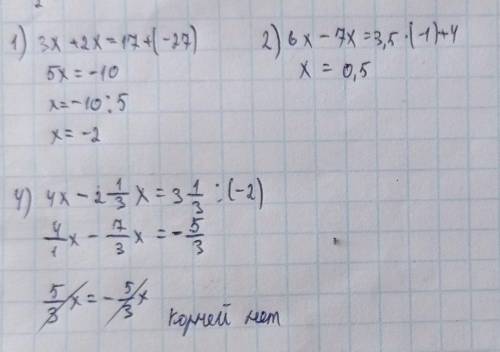 1) 3x + 2x = 17 + (-27)
5x = -10
x = -10 : 5
x = -2
2) 6x - 7x = 3,5 · (-1) + 4
x = 0,5
4) 4x - 2 1/3 x = 3 1/3 : (-2)
4/1 x - 7/3 x = - 5/3
5/3 x = - 5/3 x корней нет